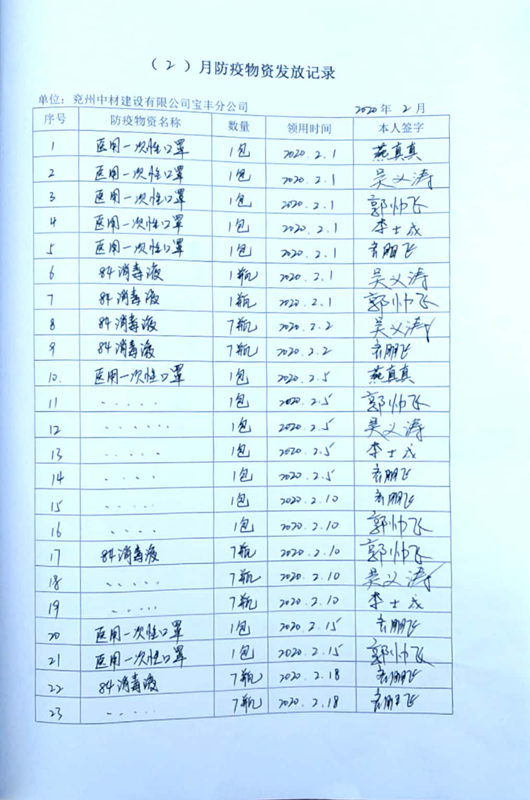 （2）月防疫物资发放记录
单位：兖州中材建设有限公司宝丰分公司 2020年2月
序号 防疫物资名称 数量 领用时间 本人签字
1 医用一次性口罩 1包 2020.2.1 燕真真
2 医用一次性口罩 1包 2020.2.1 吴义涛
3 医用一次性口罩 1包 2020.2.1 郭帅飞
4 医用一次性口罩 1包 2020.2.1 李士成
5 医用一次性口罩 1包 2020.2.1 鹏飞
6 84消毒液 1瓶 2020.2.1 吴义涛
7 84消毒液 1瓶 2020.2.1 郭帅飞
8 84消毒液 7瓶 2020.2.2 吴义涛
9 84消毒液 7瓶 2020.2.2 鹏飞
10. 医用一次性口罩 1包 2020.2.5 燕真真
11 ..... 1包 2020.2.5 郭帅飞
12 ...... 1包 2020.2.5 吴义涛
13 ..... 1包 2020.2.5 李士成
14 ..... 1包 2020.2.5 鹏飞
15 ..... 1包 2020.2.10 鹏飞
16 .... 1包 2020.2.10 郭帅飞
17 84消毒液 7瓶 2020.2.10 郭帅飞
18 ..... 7瓶 2020.2.10 吴义涛
19 ..... 7瓶 2020.2.10 李士成
20 医用一次性口罩 1包 2020.2.15 鹏飞
21 医用一次性口罩 1包 2020.2.15 郭帅飞
22 84消毒液 7瓶 2020.2.18 鹏飞
23 ..... 7瓶 2020.2.18 鹏飞